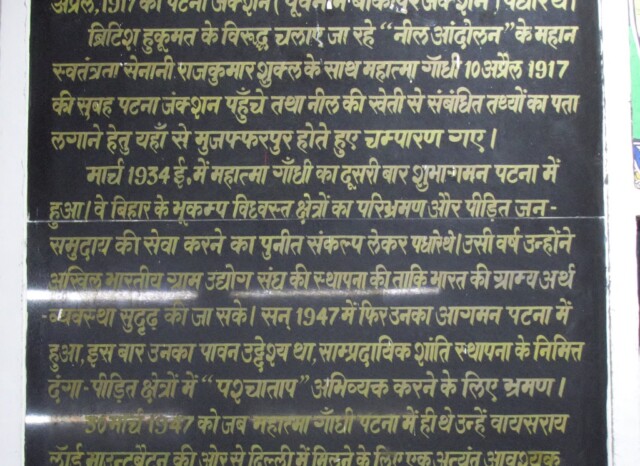 अप्रैल, 1917 को पटना जंक्शन ( पूर्वनाम बांकीपुर जंक्शन ) पधारे थे।
ब्रिटिश हुकूमत के विरूद्ध चलाए जा रहे “नील आंदोलन” के महान
स्वतंत्रता सेनानी राजकुमार शुक्ल के साथ महात्मा गाँधी 10 अप्रैल 1917
की सुबह पटना जंक्शन पहुँचे तथा नील की खेती से संबंधित तथ्यों का पता
लगाने हेतु यहाँ से मुजफ्फरपुर होते हुए चम्पारण गए।
मार्च 1934 ई. में महात्मा गाँधी का दूसरी बार शुभागमन पटना में
हुआ। वे बिहार के भूकम्प विध्वस्त क्षेत्रों का परिभ्रमण और पीड़ित जन-
समुदाय की सेवा करने का पुनीत संकल्प लेकर पधारे थे। उसी वर्ष उन्होंने
अखिल भारतीय ग्राम उद्योग संघ की स्थापना की ताकि भारत की ग्राम्य अर्थ
-व्यवस्था सुदृढ़ की जा सके। सन् 1947 में फिर उनका आगमन पटना में
हुआ, इस बार उनका पावन उद्देश्य था, साम्प्रदायिक शांति स्थापना के निमित
दंगा-पीड़ित क्षेत्रों में “पश्चाताप” अभिव्यक्त करने के लिए भ्रमण।
30 मार्च 1947 को जब महात्मा गाँधी पटना में ही थे उन्हें वायसराय
लॉर्ड माउन्टबैटन की ओर से दिल्ली में मिलने के लिए एक अत्यंत आवश्यक